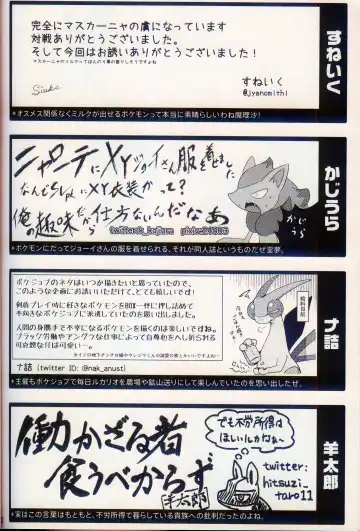 完全にマスカーニャの虜になっています
対戦ありがとうございました。
そして今回はお誘いありがとうございました！
マスカーニャのミルクってほんのり草の香りしそうですよね
すねいく
@jyanomithi
すねいく
*オスメス関係なくミルクが出せるポケモンって本当に素晴らしいわね魔理沙！
ニャルテにXYジョーイさん服を着せました
なんでSVにXY衣装かって？
俺の趣味だから仕方ないんだなあ
かじうら
かじうら
*ポケモンにだってジョーイさんの服を着せられる、それが同人誌というものだぜ霊夢。
ポケジョブのネタはいつか描きたいと思っていたので、
このような企画にお誘いいただけて、とても嬉しいです！
剣盾プレイ時に好きなポケモンをBOX一杯に押し詰めて
不向きなポケジョブに派遣していたのを思い出しました。
人間の身勝手で不幸になるポケモンを描くのは楽しいですね。
ブラック労働やアングラな仕事によって自尊心をへし折られる
可哀想な付は可愛い…
ナ詰 (twitter ID: @nak_anust)
給料明細
ナ詰
*主催もポケジョブで毎日ルカリオを農場や鉱山送りにして楽しんでいたのを思い出したぜ。
働かざる者
食うべからず
羊太郎
でも不労所得は
ほしいんだなぁ〜
twitter:
hitsuzi_
taro11
羊太郎
*実はこの言葉はもともと、不労所得で暮らしている貴族への批判だったのよね。